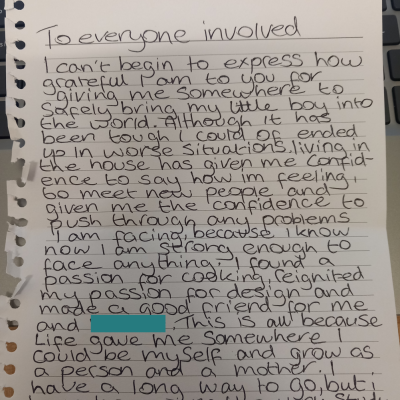 To everyone involved
I can't begin to express how
grateful I am to you for
giving me somewhere to
safely bring my little boy into
the world. Although it has
been tough I could of ended
up in worse situations. living in
the house has given me confid-
ence to say how im feeling,
to meet new people and
given me the confidence to
push through any problems
I am facing, because i know
now I am strong enough to
face anything. I found a
passion for cooking, reignited
my passion for design and
made a good friend for me
and . This is all because
Life gave me somewhere I
could be myself and grow as
a person and a mother. I
have a long way to go, but i